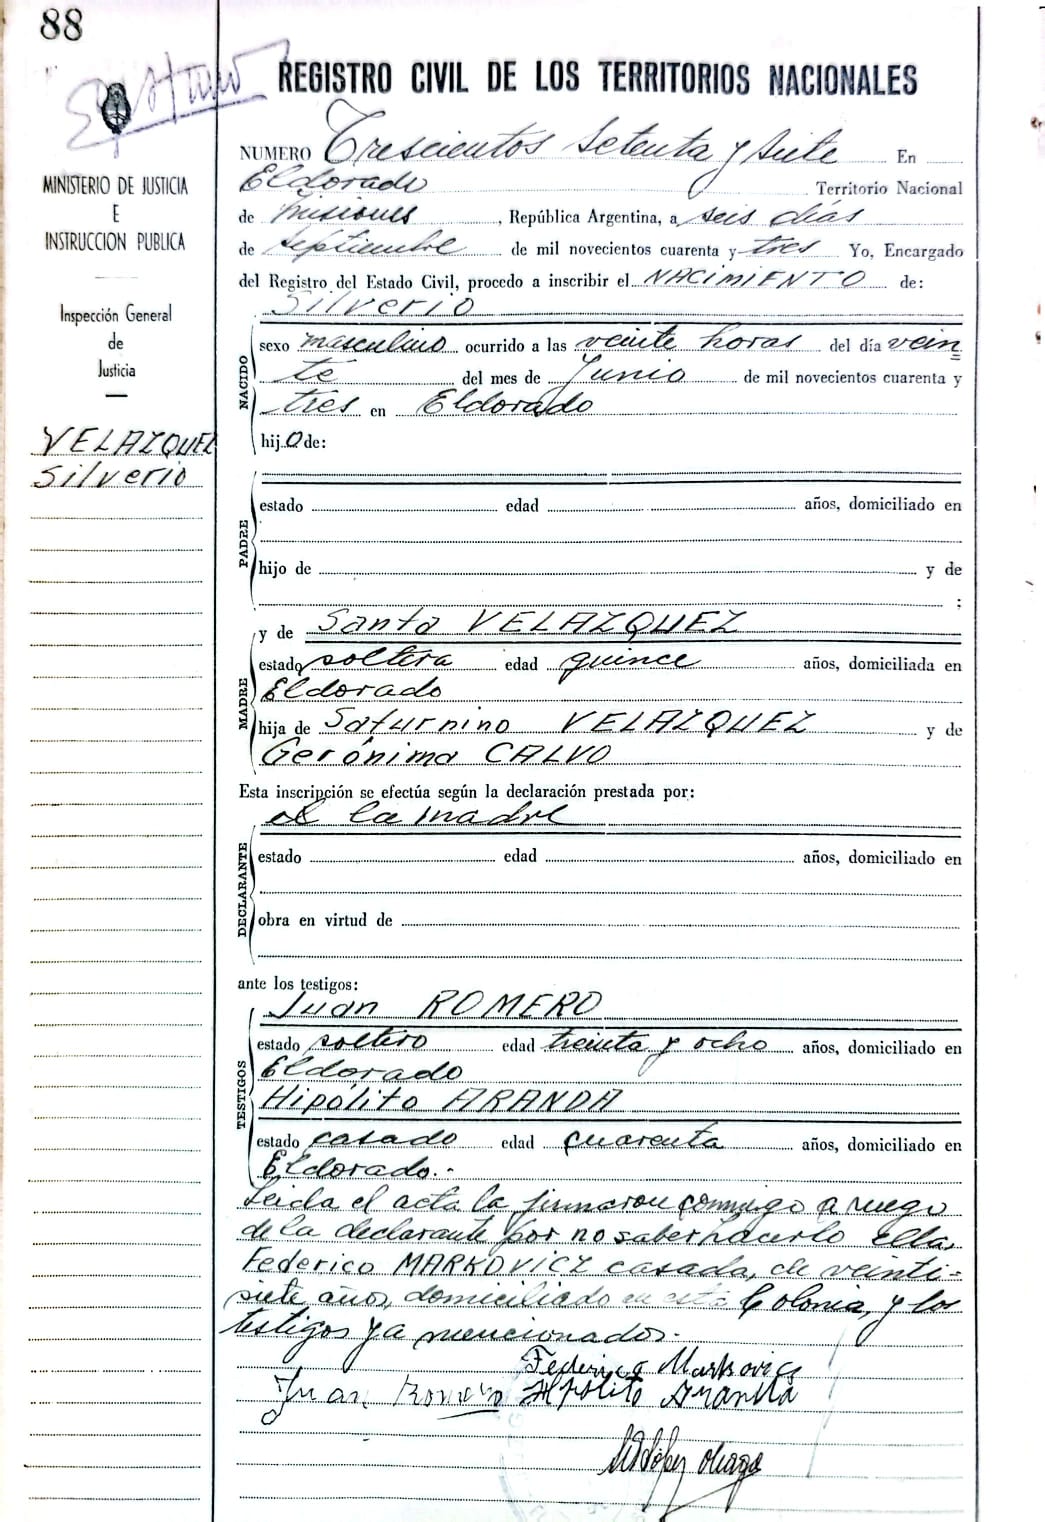 88
REGISTRO CIVIL DE LOS TERRITORIOS NACIONALES
MINISTERIO DE JUSTICIA
E
INSTRUCCION PUBLICA
Inspección General
de
Justicia
VELAZQUEZ
Silverio
NUMERO Trescientos Setenta y Siete En
Eldorado Territorio Nacional
de Misiones, República Argentina, a seis días
de septiembre de mil novecientos cuarenta y tres Yo, Encargado
del Registro del Estado Civil, procedo a inscribir el NACIMIENTO de:
Silverio
NACIDO
sexo masculino ocurrido a las veinte horas del día vein=
te del mes de Junio de mil novecientos cuarenta y
tres en Eldorado
hijo de:
PADRE
estado edad años, domiciliado en
hijo de y de
;
MADRE
y de Santa VELAZQUEZ
estado soltera edad quince años, domiciliada en
Eldorado
hija de Saturnino VELAZQUEZ y de
Gerónima CALVO
Esta inscripción se efectúa según la declaración prestada por:
la madre
DECLARANTE
estado edad años, domiciliado en
obra en virtud de
ante los testigos:
TESTIGOS
Juan ROMERO
estado soltero edad treinta y ocho años, domiciliado en
Eldorado
Hipólito ARANDA
estado casado edad cuarenta años, domiciliado en
Eldorado.-
Leida el acta la firmaron conmigo a ruego
de la declarante por no saber hacerlo ella,
Federico MARKOVICZ casado, de veinti=
siete años, domiciliado en esta Colonia, y los
testigos ya mencionados.-
Federico Markovicz
Juan Romero Hipolito Aranda